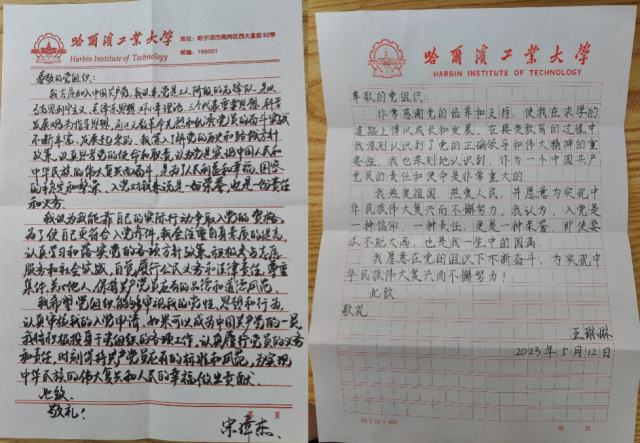 哈爾濱工業大學
Harbin Institute of Technology
地址：哈尔滨市南岗区西大直街92号
邮编：150001
尊敬的党组织：
我志愿加入中国共产党，我认为，党是工人阶级的先锋队，是以
马克思列宁主义、毛泽东思想、邓小平理论、三个代表重要思想、科学
发展观为指导思想，
不断丰富、发展起来的。我深入了解党的历史和路线方针
政策，认真思考党的使命和职责，认为党是实现中国人民和
中华民族的伟大复兴而奋斗，是为了人民利益和幸福、国家
的稳定和繁荣，入党对我来说是一份荣誉，也是一份责任
和义务。
我认为我能靠自己的实际行动争取入党的资格，
为了使自己更符合入党条件，我会注重自身素质的提高，
认真学习和落实党的各项方针政策，积极参与志愿
服务和社会实践，自觉履行公民义务和法律责任，尊重
集体、关心他人，保持共产党员应有的品德和道德风范。
我希望党组织能够审视我的党性、思想和行为，
认真审核我的入党申请，如果可以成为中国共产党的一员，
我将积极投身于党组织的各项工作，认真履行党员的义务
和责任，时刻保持共产党员应有的标准和风范，为实现
中华民族的伟大复兴和人民的幸福做出贡献。
此致
敬礼！
页
哈爾濱工業大學
HARBIN INSTITUTE OF TECHNOLOGY
尊敬的党组织：
非常感谢党的培养和支持，使我在求学的
道路上得以成长和发展。在接受教育的过程中
我深刻认识到了党的正确领导和伟大精神的重
要性，我也深刻地认识到，作为一个中国共产
党员的责任和使命是非常重大的。
我热爱祖国，热爱人民，并愿意为实现中
华民族伟大复兴而不懈努力。我认为，入党是
一种信仰，一种责任，更是一种荣誉，即使要
求不配太高，也是我一生中的圆满。
我愿意在党的组织下不断奋斗，为实现中
华民族伟大复兴而不懈努力！
此致
敬礼
王琳琳
2023年5月12日
页